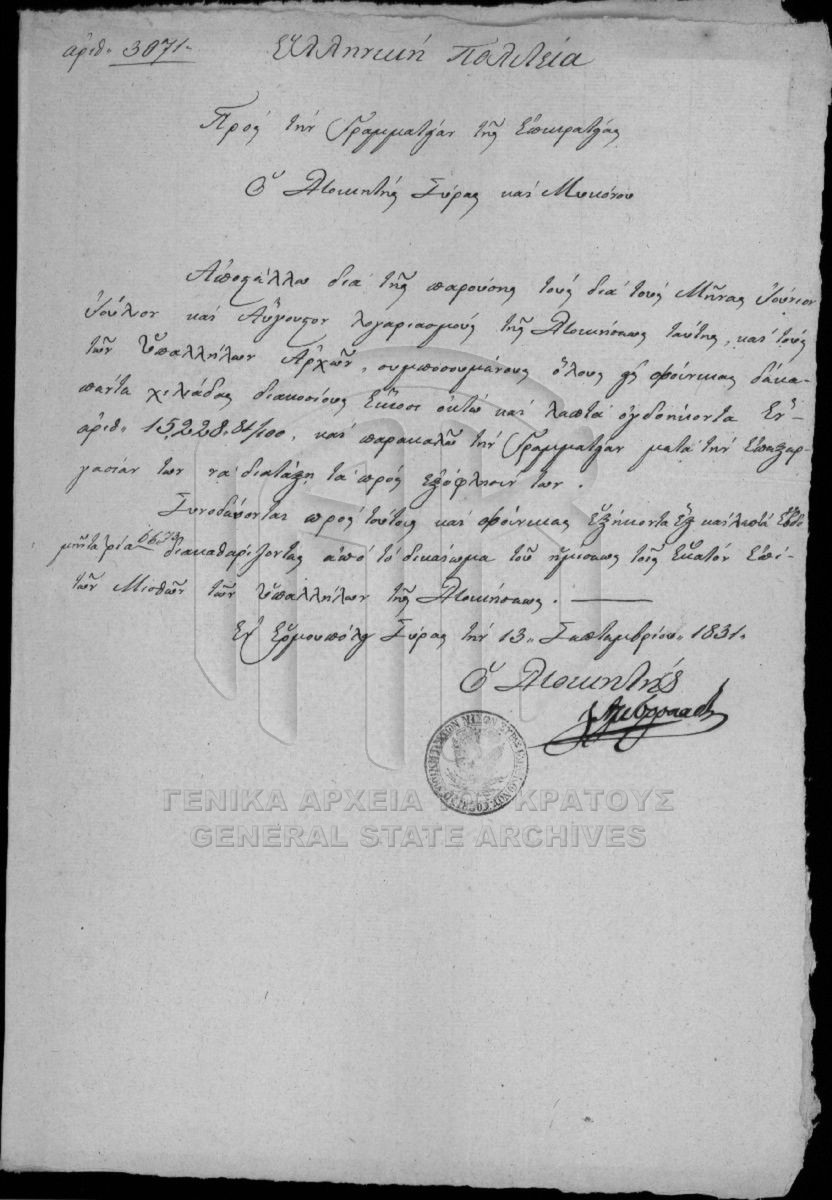 ἀριθ. 3071.
Ἑλληνική Πολιτεία
Πρός τήν Γραμματείαν τῆς Ἐπικρατείας
Ὁ Διοικητής Σύρας καί Μυκόνου
Ἀποστέλλω διά τῆς παρούσης τούς διά τούς Μῆνας Ἰούνιον
Ἰούλιον καί Αὔγουστον λογαριασμούς τῆς Διοικήσεως ταύτης, καί τούς
τῶν Ὑπαλλήλων Ἀρχῶν, συμποσουμένους ὅλους εἰς φοίνικας δέκα-
πέντε χιλιάδας διακοσίους εἴκοσι ὀκτώ καί λεπτά ὀγδοήκοντα ἕν
ἀριθ. 15,228.81/100, καί παρακαλῶ τήν Γραμματείαν μετά τήν ἐπεξερ-
γασίαν των νά διατάξῃ τά πρός ἐξόφλησίν των.
Συνοδεύονται πρός τούτοις καί φοίνικας ἑξήκοντα ἕξ καί λεπτά ἑβδο
μῆντα τρία 66.73 διακαθαρίζοντας ἀπό τό δικαίωμα τοῦ ἡμίσεως τοῖς ἑκατόν ἐπί
τῶν Μισθῶν τῶν Ὑπαλλήλων τῆς Διοικήσεως.
Ἐν Ἑρμουπόλει Σύρας τήν 13 Σεπτεμβρίου 1831.
Ὁ Διοικητής
ΓΕΝΙΚΑ ΑΡΧΕΙΑ ΤΟΥ ΚΡΑΤΟΥΣ
GENERAL STATE ARCHIVES